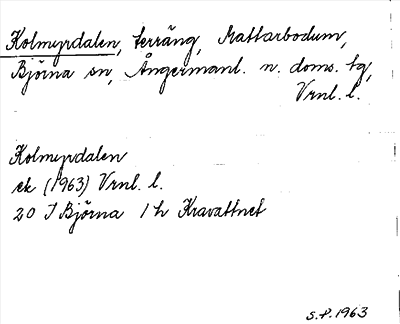 Kolmyrdalen, terräng, Mattarbodum,
Björna sn, Ångermanl. n. doms. tg,
Vrnl. l.
Kolmyrdalen
ek (1963) Vrnl. l.
20 I Björna 1 h Kravattnet
S.P. 1963